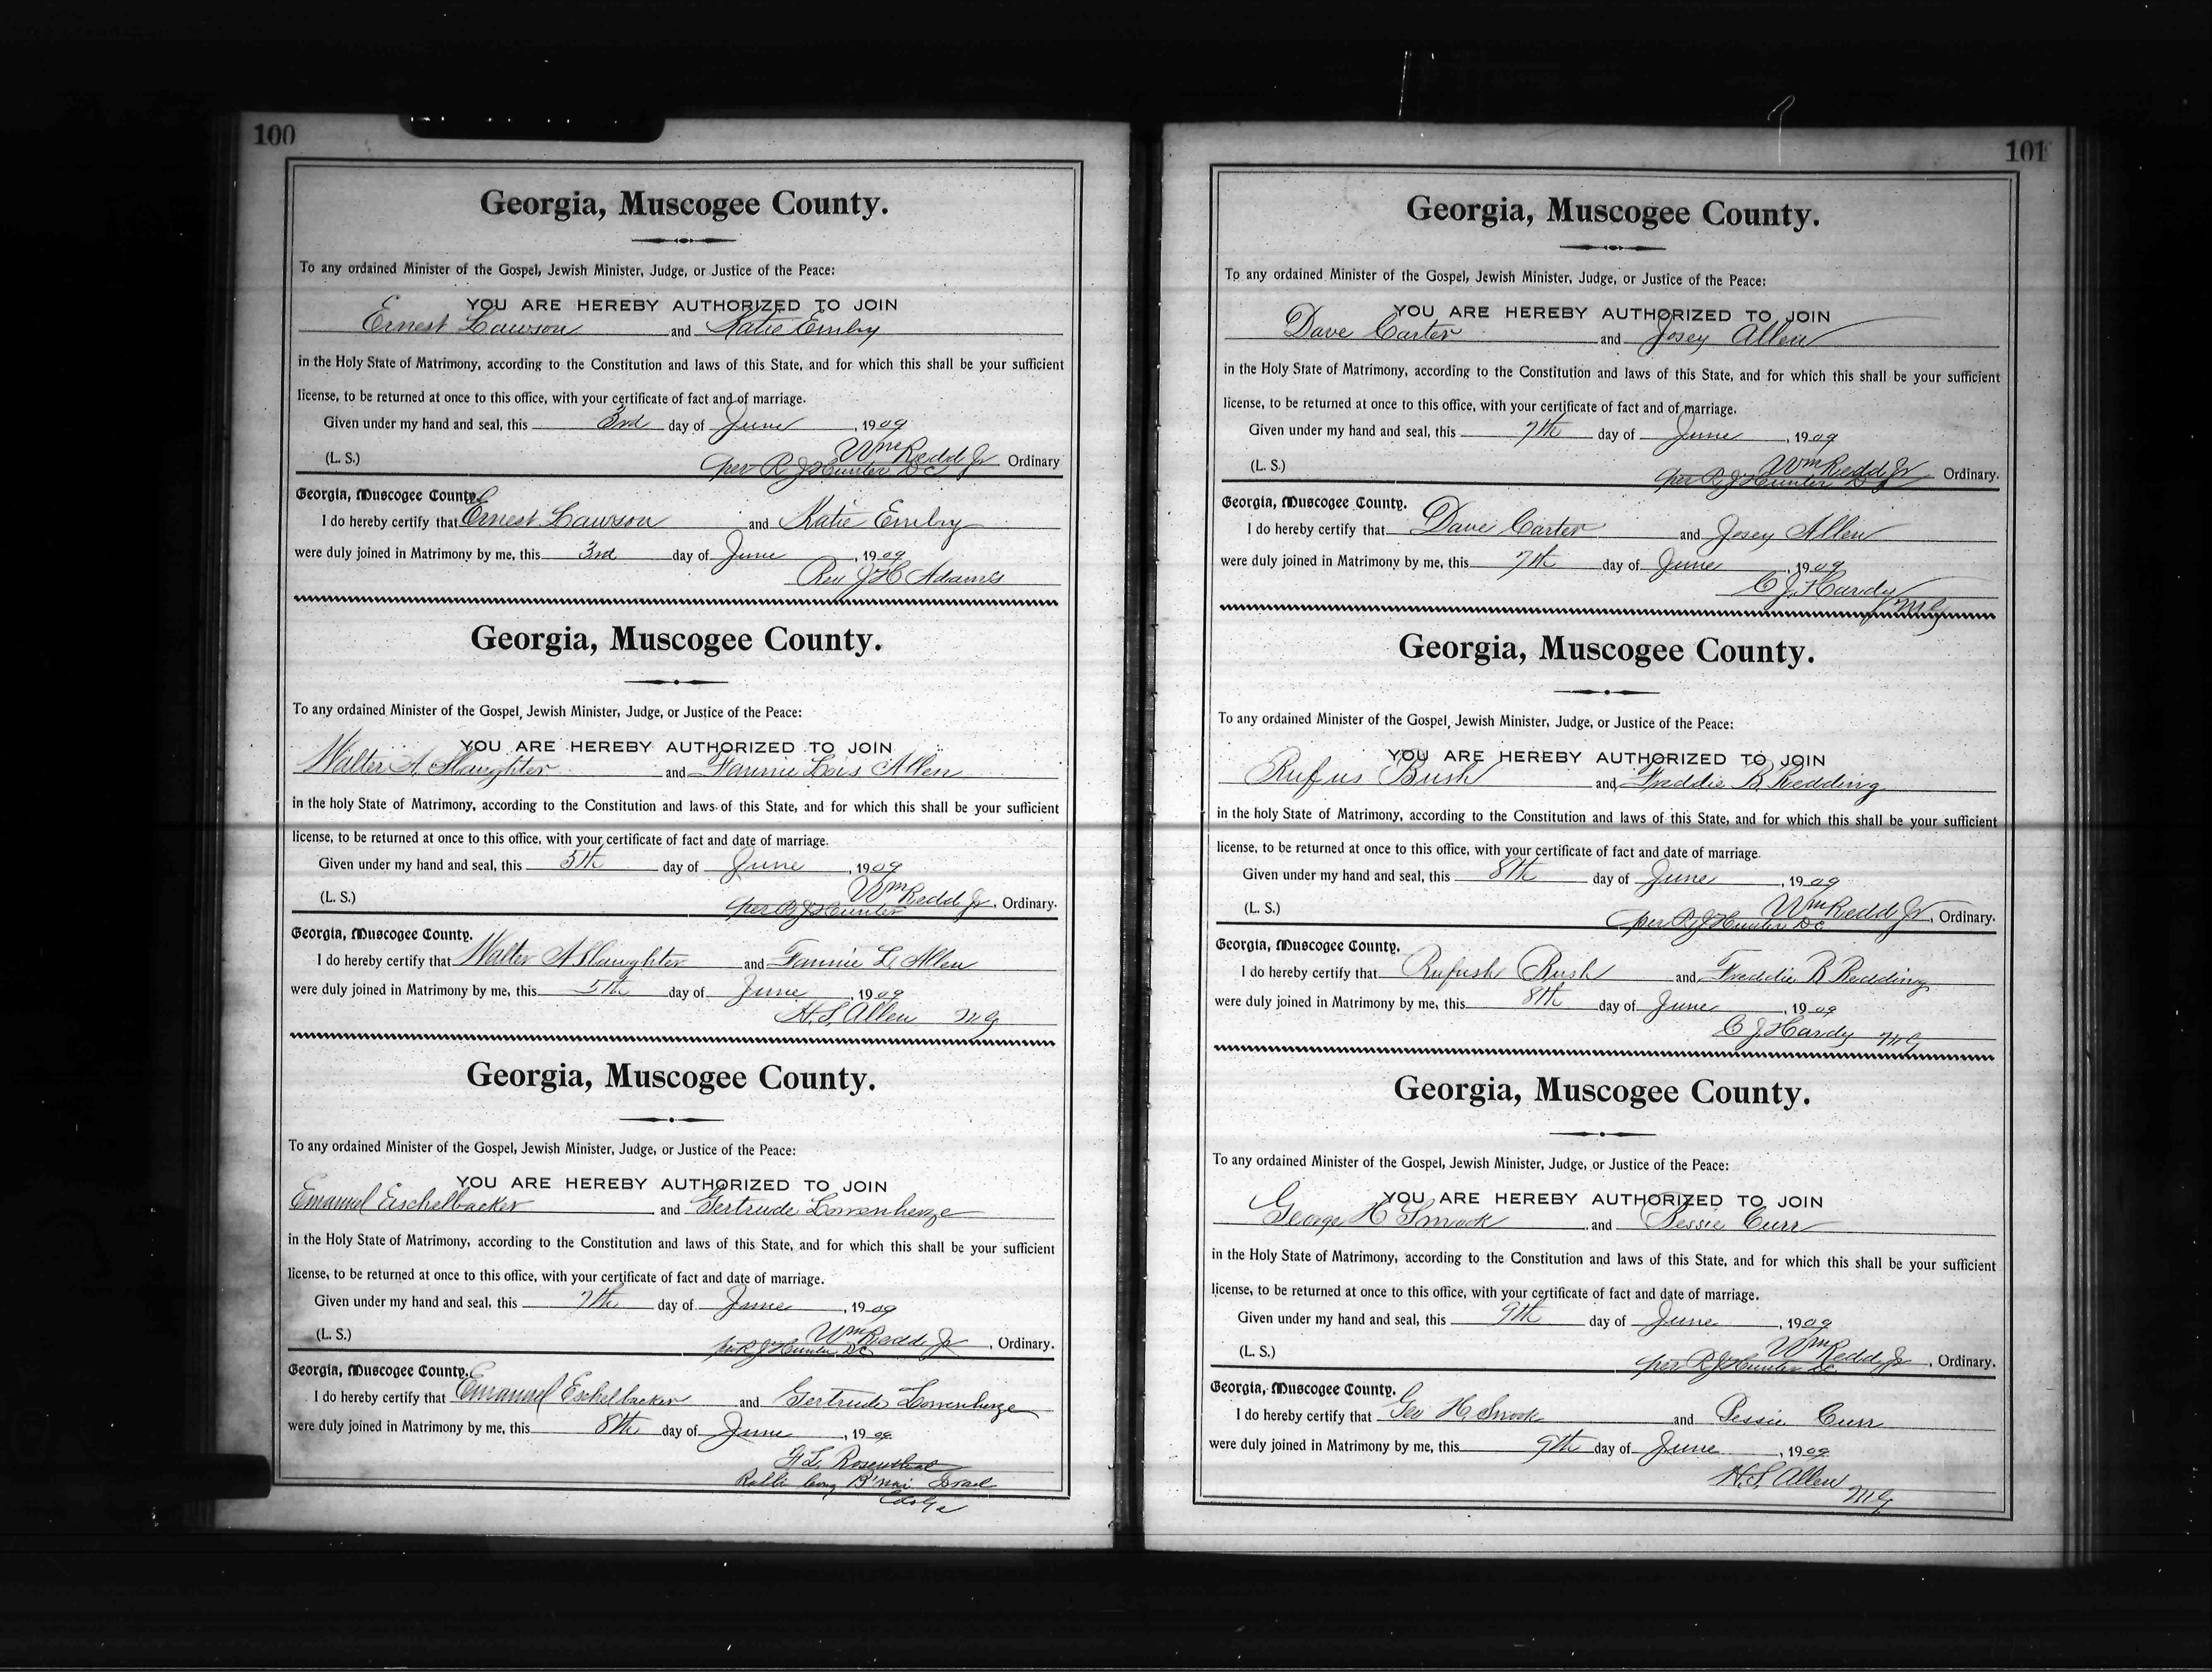 100
Georgia, Muscogee County.
To any ordained Minister of the Gospel, Jewish Minister, Judge, or Justice of the Peace:
YOU ARE HEREBY AUTHORIZED TO JOIN
Ernest Lawson and Katie Embry
in the Holy State of Matrimony, according to the Constitution and laws of this State, and for which this shall be your sufficient
license, to be returned at once to this office, with your certificate of fact and of marriage.
Given under my hand and seal, this 3rd day of June, 1909
Wm Redd Jr
(L. S.) per R J Hunter DC Ordinary
Georgia, Muscogee County.
I do hereby certify that Ernest Lawson and Katie Embry
were duly joined in Matrimony by me, this 3rd day of June, 1909
Rev J H Adams
Georgia, Muscogee County.
To any ordained Minister of the Gospel, Jewish Minister, Judge, or Justice of the Peace:
YOU ARE HEREBY AUTHORIZED TO JOIN
Walter A Slaughter and Fannie Lois Allen
in the holy State of Matrimony, according to the Constitution and laws of this State, and for which this shall be your sufficient
license, to be returned at once to this office, with your certificate of fact and date of marriage.
Given under my hand and seal, this 5th day of June, 1909
Wm Redd Jr, Ordinary.
(L. S.) per R J Hunter
Georgia, Muscogee County.
I do hereby certify that Walter A Slaughter and Fannie L. Allen
were duly joined in Matrimony by me, this 5th day of June, 1909
H. S. Allen MG
Georgia, Muscogee County.
To any ordained Minister of the Gospel, Jewish Minister, Judge, or Justice of the Peace:
YOU ARE HEREBY AUTHORIZED TO JOIN
Emanuel Eschelbacker and Gertrude
in the Holy State of Matrimony, according to the Constitution and laws of this State, and for which this shall be your sufficient
license, to be returned at once to this office, with your certificate of fact and date of marriage.
Given under my hand and seal, this 7th day of June, 1909
Wm Redd Jr, Ordinary.
(L. S.) per R J Hunter DC
Georgia, Muscogee County.
I do hereby certify that Emanuel Eschelbacker and Gertrude
were duly joined in Matrimony by me, this 8th day of June, 1909
F. L. Rosenthal
Rabbi Cong B'nai Israel
101
Georgia, Muscogee County.
To any ordained Minister of the Gospel, Jewish Minister, Judge, or Justice of the Peace:
YOU ARE HEREBY AUTHORIZED TO JOIN
Dave Carter and Josey Allen
in the Holy State of Matrimony, according to the Constitution and laws of this State, and for which this shall be your sufficient
license, to be returned at once to this office, with your certificate of fact and of marriage.
Given under my hand and seal, this 7th day of June, 1909
Wm Redd Jr
(L. S.) per R J Hunter Ordinary.
Georgia, Muscogee County.
I do hereby certify that Dave Carter and Josey Allen
were duly joined in Matrimony by me, this 7th day of June, 1909
C. J. Hardy
MG
Georgia, Muscogee County.
To any ordained Minister of the Gospel, Jewish Minister, Judge, or Justice of the Peace:
YOU ARE HEREBY AUTHORIZED TO JOIN
Rufus Bush and Freddie B. Redding
in the holy State of Matrimony, according to the Constitution and laws of this State, and for which this shall be your sufficient
license, to be returned at once to this office, with your certificate of fact and date of marriage.
Given under my hand and seal, this 8th day of June, 1909
Wm Redd Jr, Ordinary.
(L. S.) per R J Hunter DC
Georgia, Muscogee County.
I do hereby certify that Rufush Bush and Freddie B Redding
were duly joined in Matrimony by me, this 8th day of June, 1909
C. J. Hardy MG
Georgia, Muscogee County.
To any ordained Minister of the Gospel, Jewish Minister, Judge, or Justice of the Peace:
YOU ARE HEREBY AUTHORIZED TO JOIN
George H Smook and Bessie Curr
in the Holy State of Matrimony, according to the Constitution and laws of this State, and for which this shall be your sufficient
license, to be returned at once to this office, with your certificate of fact and date of marriage.
Given under my hand and seal, this 9th day of June, 1909
Wm Redd Jr, Ordinary.
(L. S.) per R J Hunter DC
Georgia, Muscogee County.
I do hereby certify that Geo H. Snook and Bessie Curr
were duly joined in Matrimony by me, this 9th day of June, 1909
H. S. Allen
MG